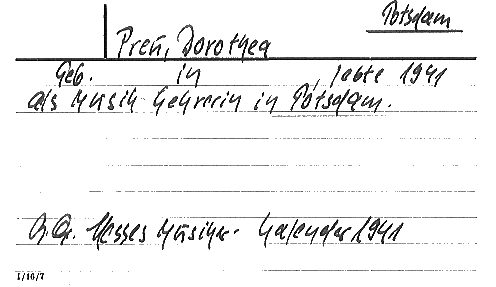 Potsdam
Preu, Dorothea
Geb. in , lebte 1941
als Musik Lehrerin in Potsdam.
Hesses Musiker- Kalender 1941
1/16/7